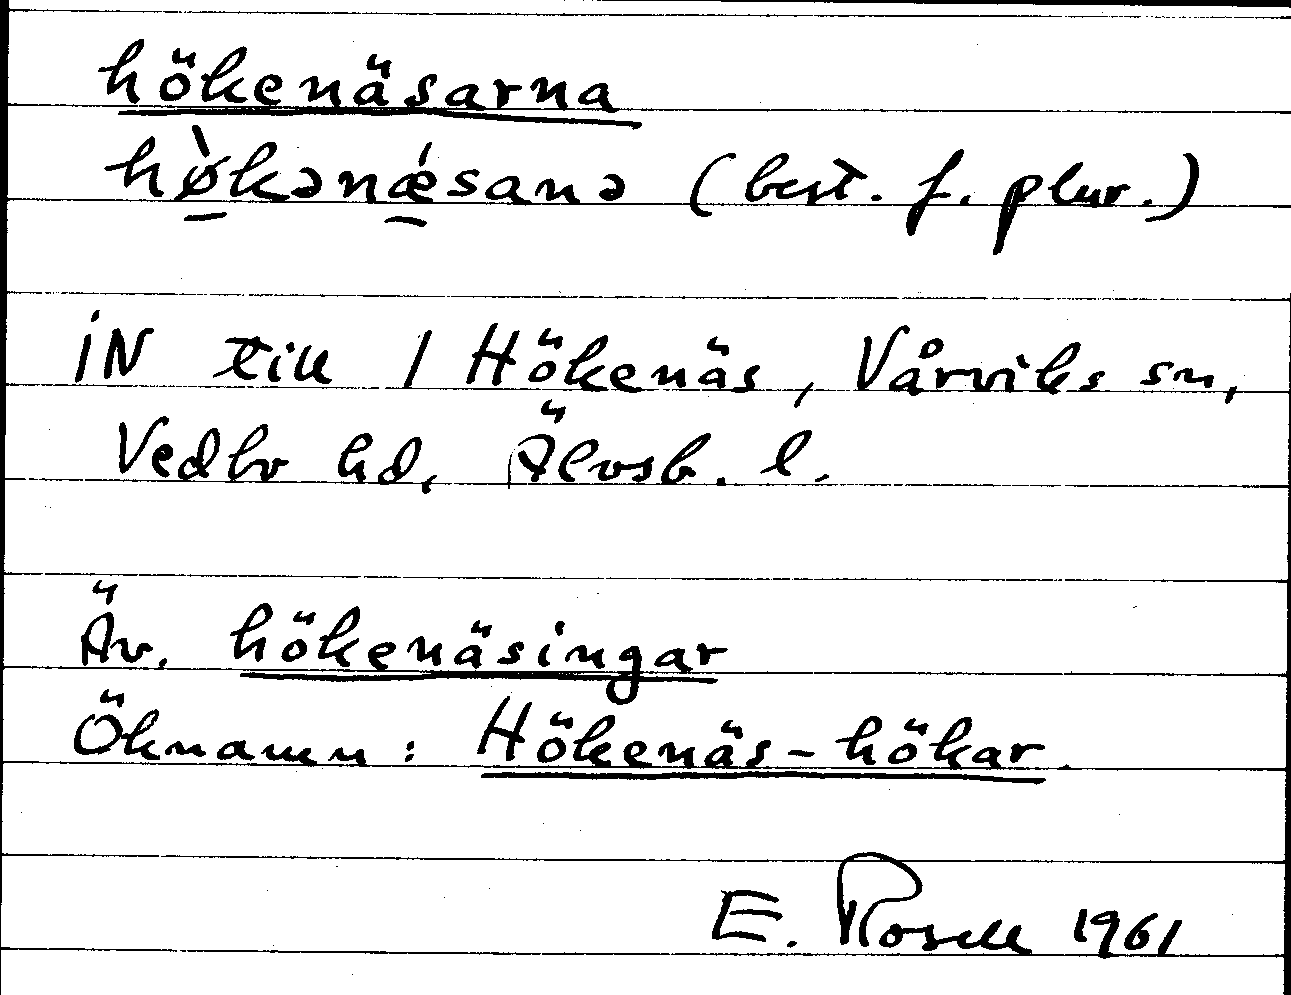 hökenäsarna
hø̀kənǽsanə (best. f. plur.)
iN till / Hökenäs, Vårviks sn,
Vedbo hd, Älvsb. l.
Äv. hökenäsingar
Öknamn: Hökenäs-hökar.
E. Rosell 1961